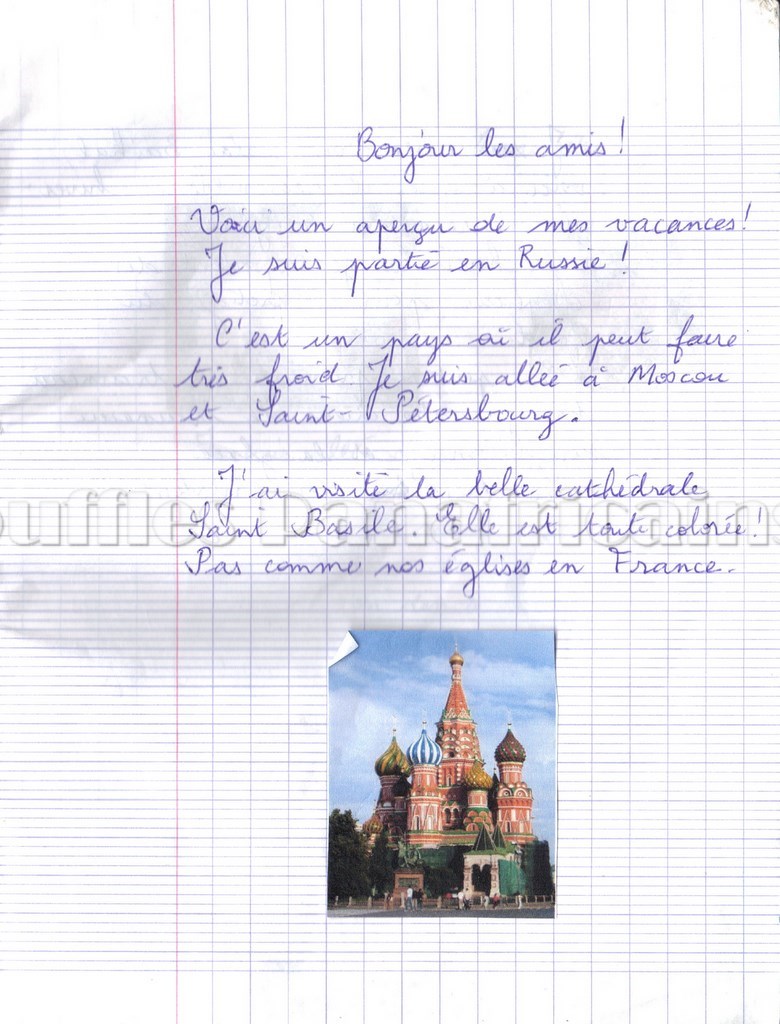 Bonjour les amis !
Voici un aperçu de mes vacances !
Je suis partie en Russie !
C'est un pays où il peut faire
très froid. Je suis allée à Moscou
et Saint-Pétersbourg.
J'ai visité la belle cathédrale
Saint Basile. Elle est toute colorée !
Pas comme nos églises en France.